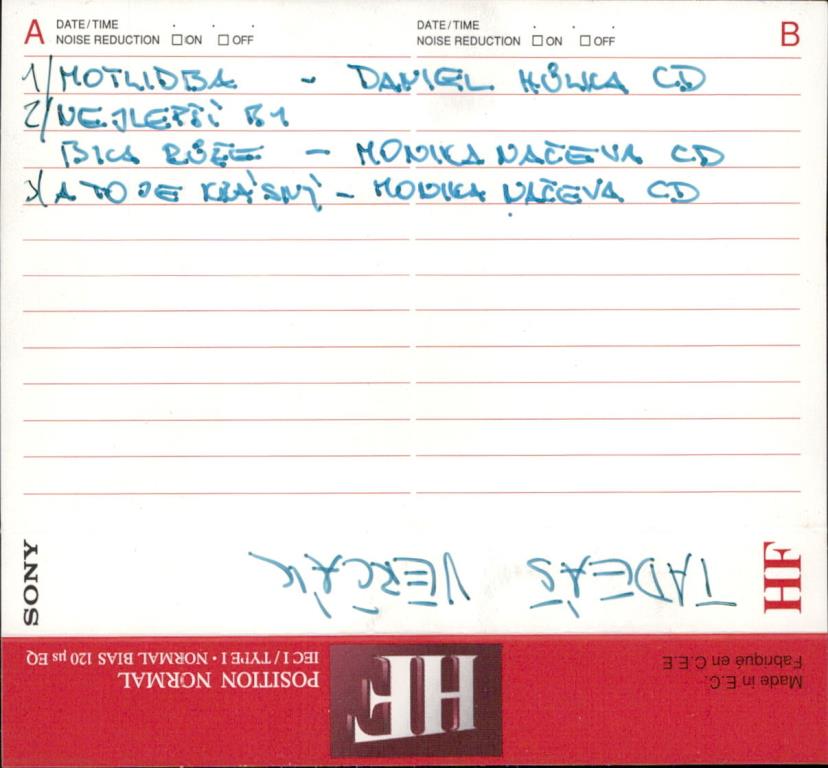 A DATE/TIME . . .
NOISE REDUCTION ☐ ON ☐ OFF
DATE/TIME . . . B
NOISE REDUCTION ☐ ON ☐ OFF
1/ MOTLIDBA - DANIEL HŮLKA CD
2/ NEJLEPŠÍ BY
BYLA RŮŽE - MONIKA NAČEVA CD
3/ A TO JE KRÁSNÝ - MONIKA NAČEVA CD
SONY
TADEÁŠ VERČÁK
HF
Made in E.C.
Fabriqué en C.E.E
HF
POSITION NORMAL
IEC I / TYPE I · NORMAL BIAS 120 µs EQ